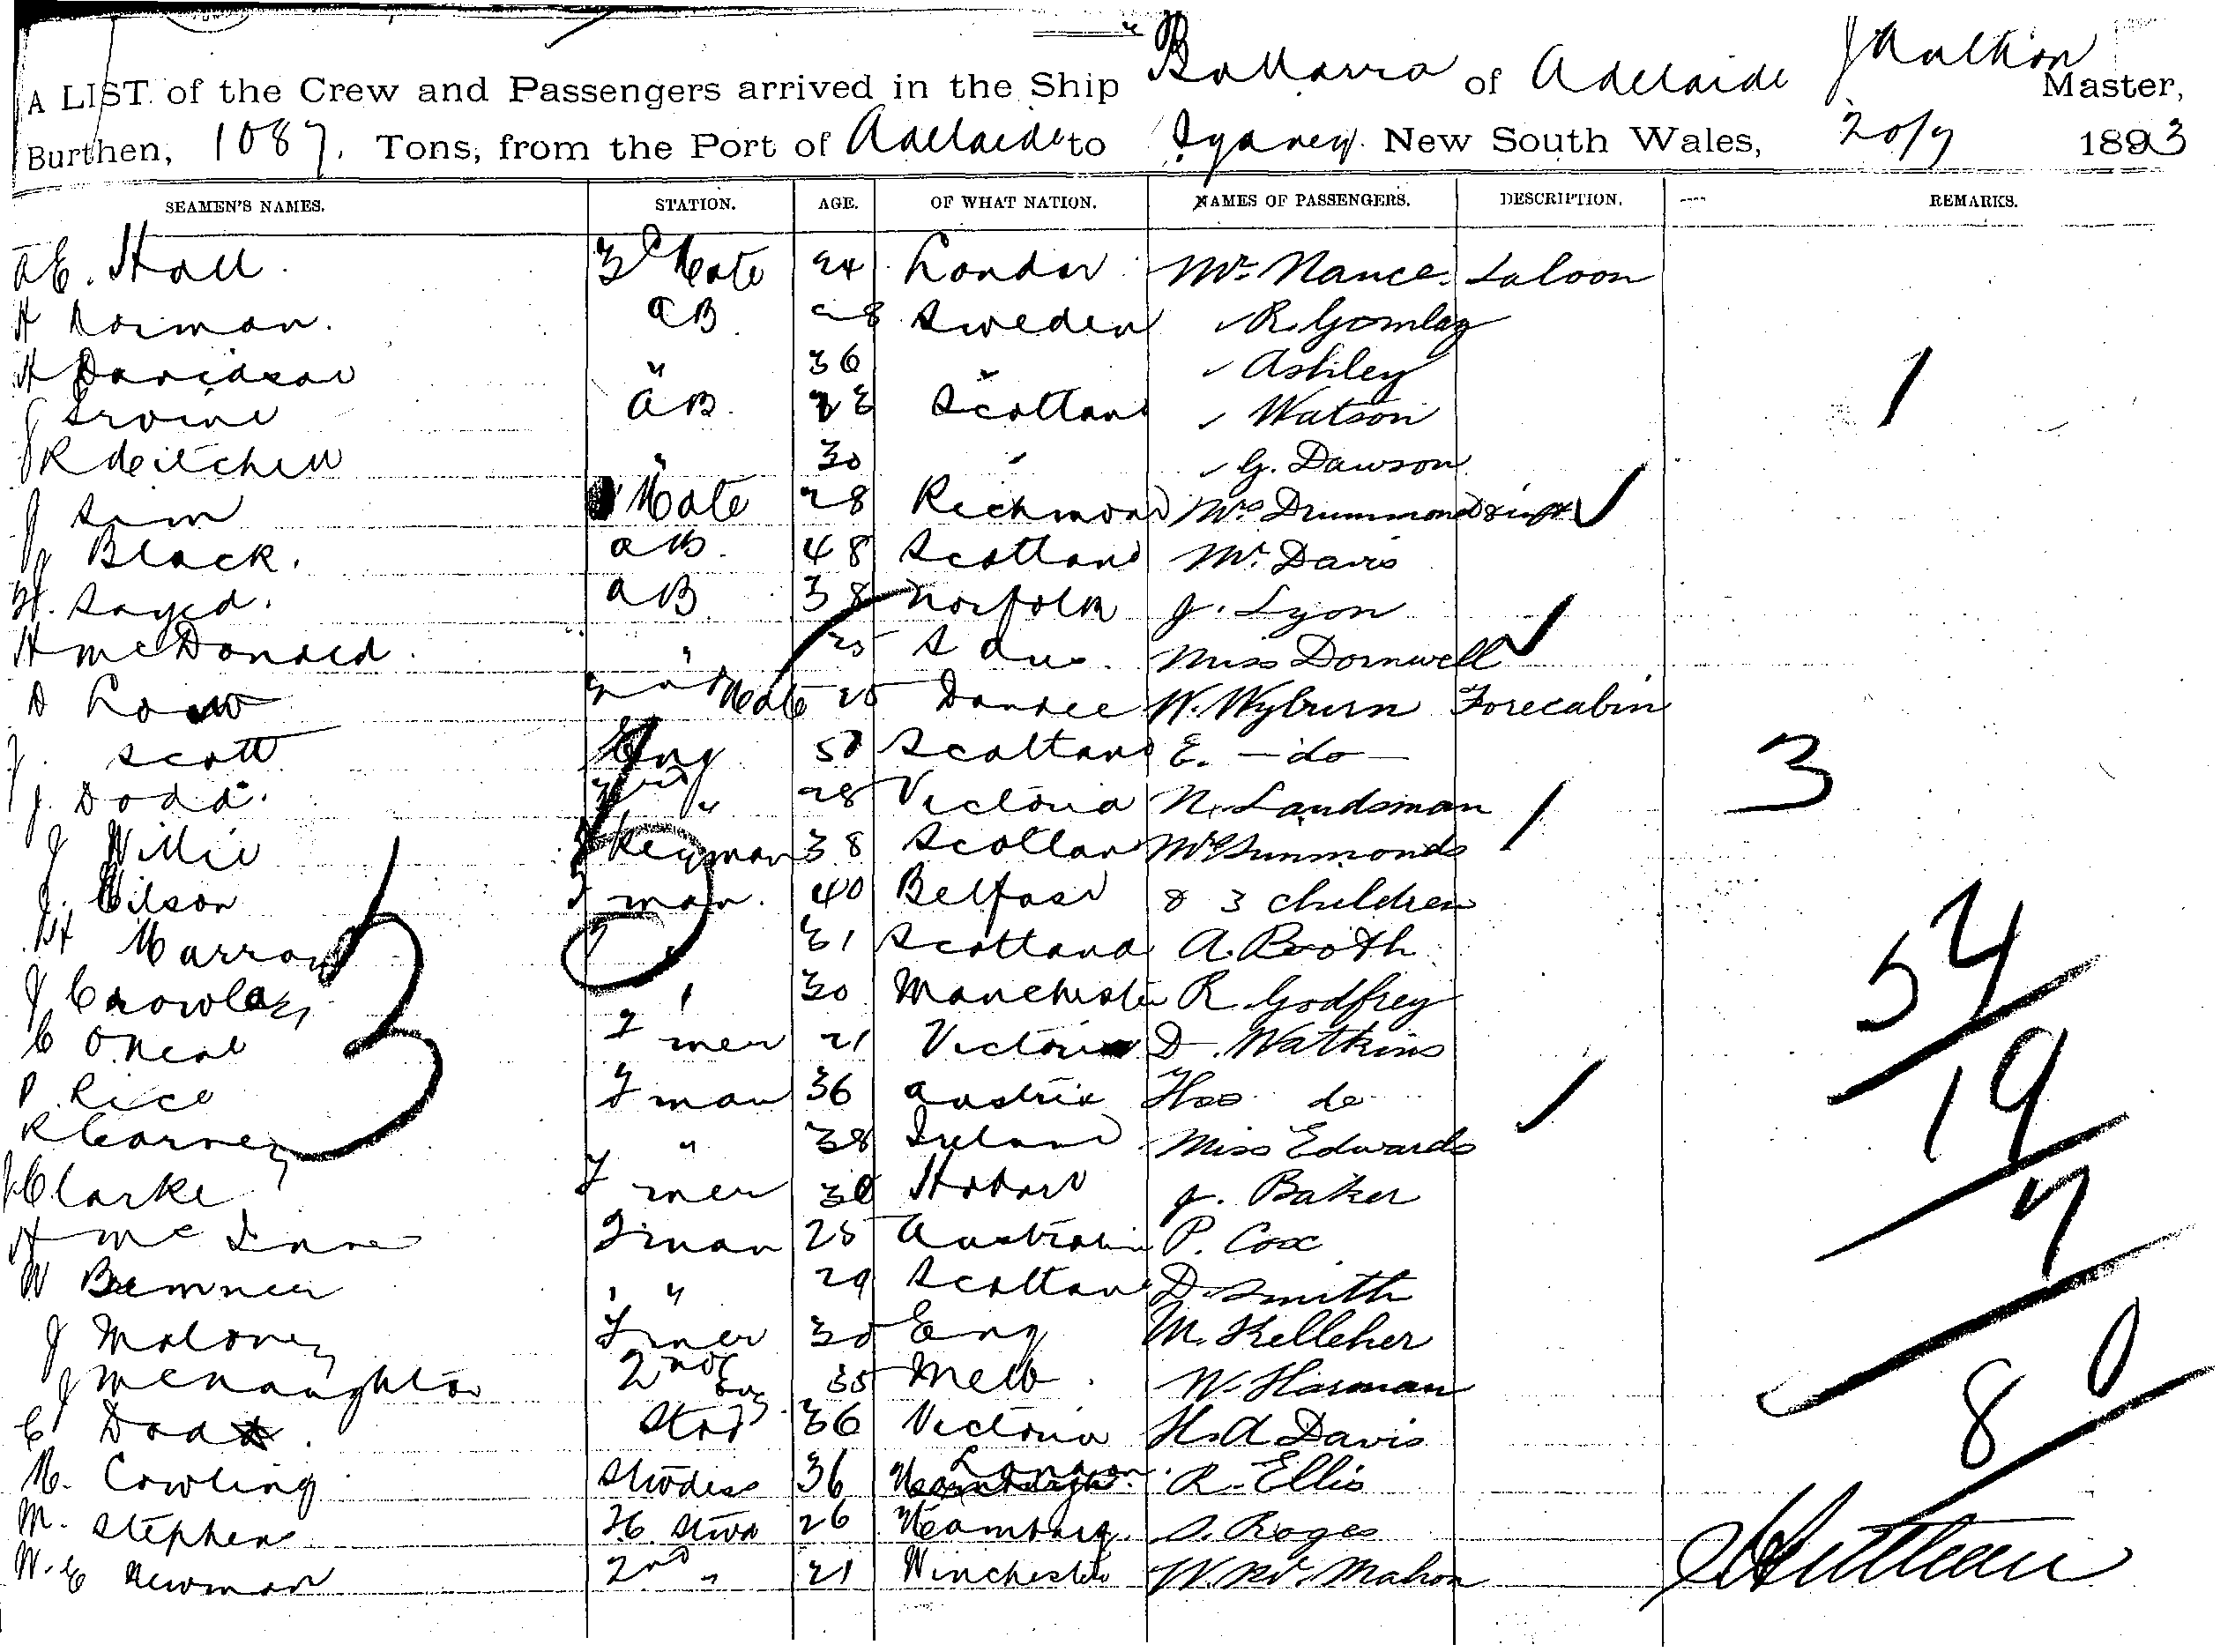 A LIST of the Crew and Passengers arrived in the Ship " Ballarra of Adelaide Master,
Burthen, 1087. Tons, from the Port of Adelaide to Sydney. New South Wales, 20/7 1893
SEAMEN'S NAMES. STATION. AGE. OF WHAT NATION. NAMES OF PASSENGERS. DESCRIPTION. REMARKS.
A E. Hall. 3d Mate 24 London Mr. Nance. Saloon
H Norman. AB 28 Sweden R. Gomlay
H Davidson " 36 " Ashley 1
J Irvine AB. 28 Scotland Watson
J R Mitchell " 30 " G. Dawson
J Sim Mate 28 Richmond Mrs Drummond
J Black. AB. 48 Scotland Mr. Davis
H. Sayed. AB 38 Norfolk J. Lyon
H McDonald. " 25 S Aus. Miss Dornwell
D Low 2nd Mate 25 Dundee W. Wyburn Forecabin
J. Scott Eng 50 Scotland E. - do - 3
J. Dodd. 3rd " 28 Victoria N. Landsman
J Willie Keyman 38 Scotland Mrs Summonds
J. Wilson F man. 40 Belfast & 3 children
W Marrow " 31 Scotland A. Booth 54
J Crowley " 30 Manchester R. Godfrey
C O.Neal T mer 21 Victoria D. Watkins
P. Rice F man 36 Austria Thos do 19
R Carney F " 38 Ireland Miss Edwards
J Clarke T mer 30 Hobart J. Baker 7
H McInnes F man 25 Australia P. Cox
W Bremner " " 29 Scotland D. Smith
J Moloney T mer 30 Eng M. Kelleher
J McNaughton 2nd Eng 35 Melb. W. Harman 80
C Dodd. Stwd 36 Victoria H. A Davis
M. Cowling Stwdess 36 London. R. Ellis
M. Stephen 26 Hamburg. S. Roges
W. E Newman 2nd " 21 Winchester W. Mc. Mahon